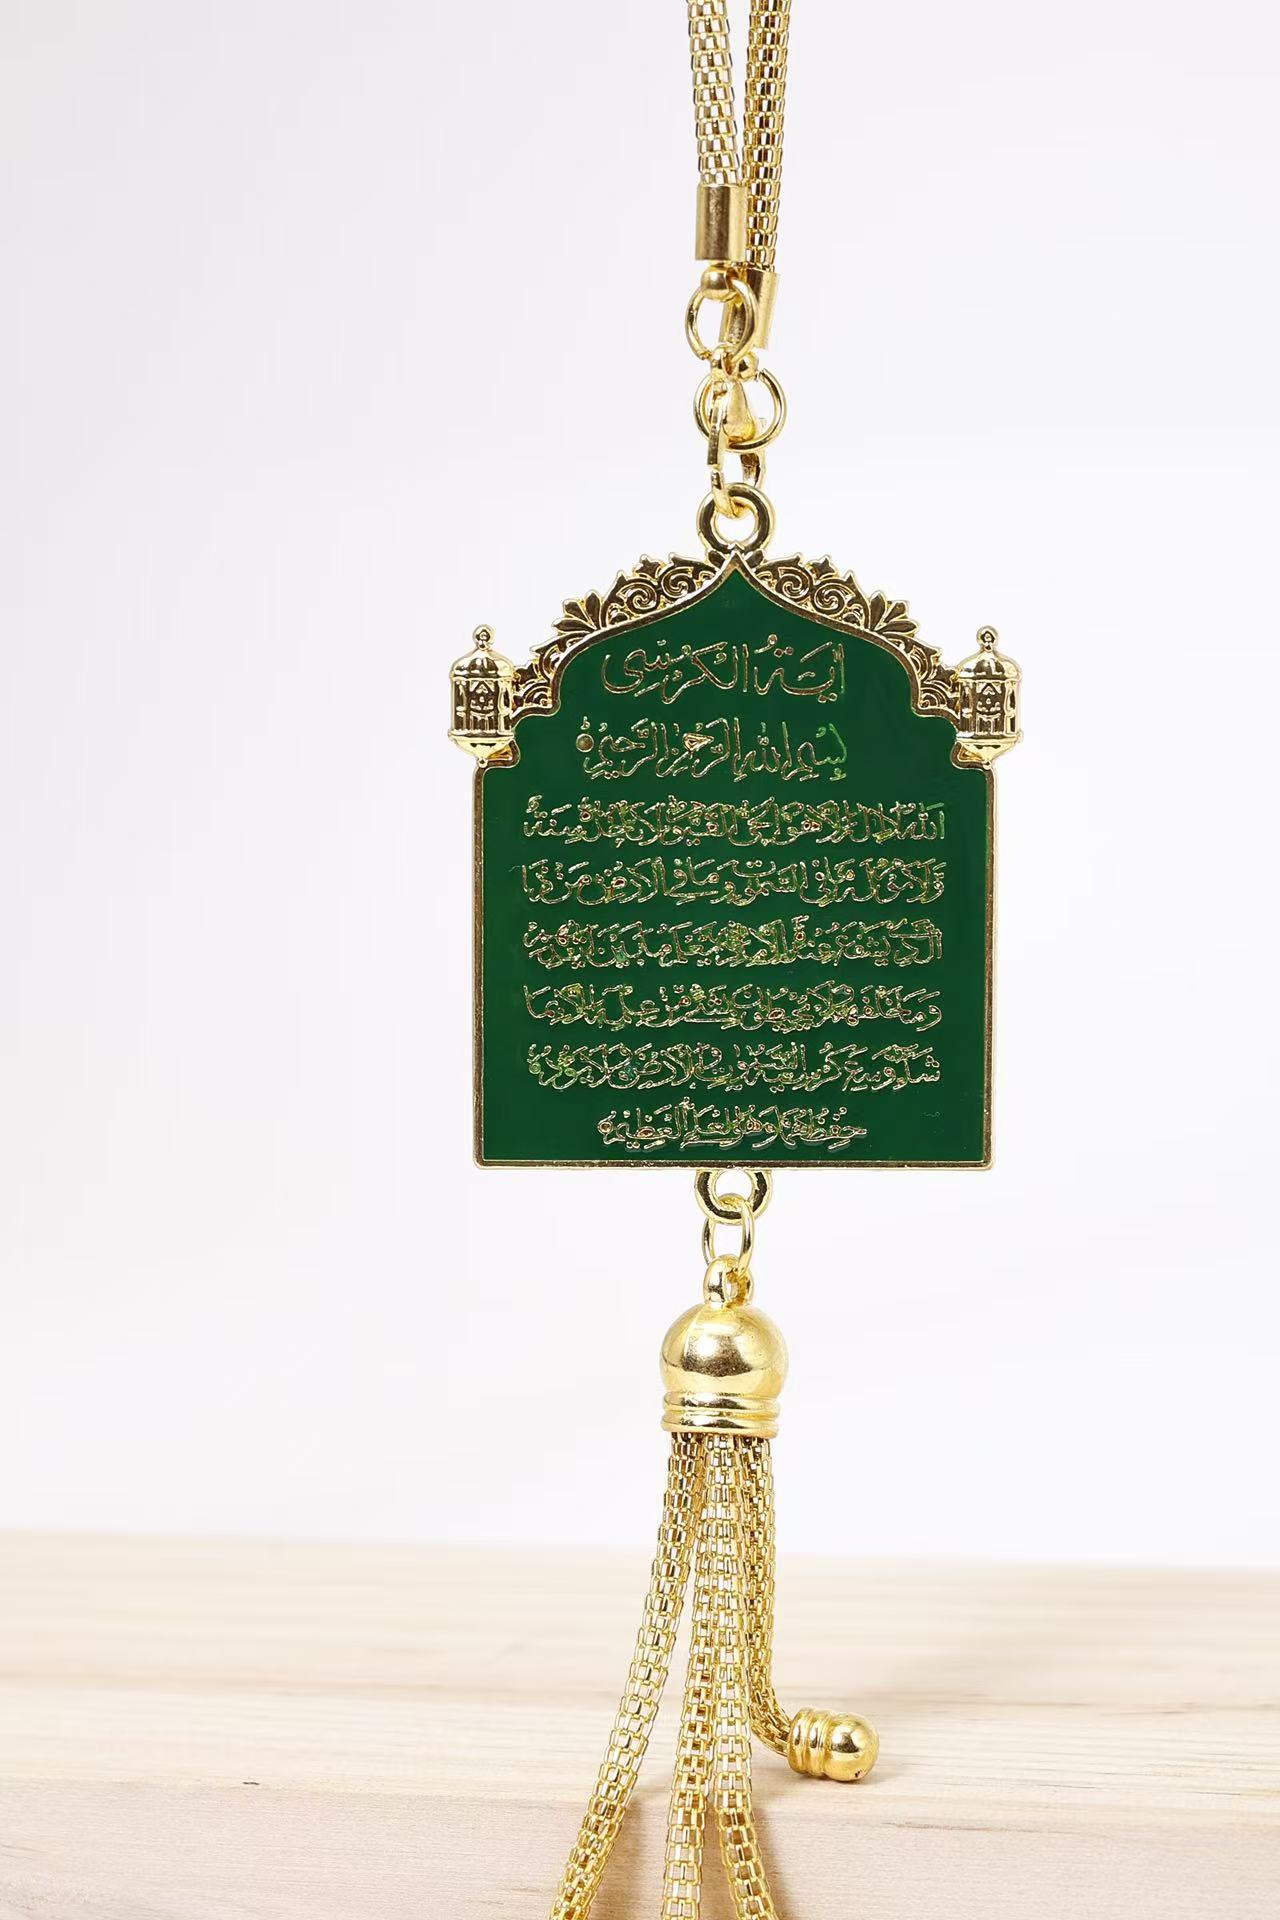 اية الكرسي
بسم الله الرحمن الرحيم
الله لا اله الا هو الحي القيوم لا تاخذه سنة
ولا نوم له ما في السموت وما في الارض من ذا
الذي يشفع عنده الا باذنه يعلم ما بين ايديهم
وما خلفهم ولا يحيطون بشئ من علمه الا بما
شاء وسع كرسيه السموت والارض ولا يؤده
حفظهما وهو العلي العظيم